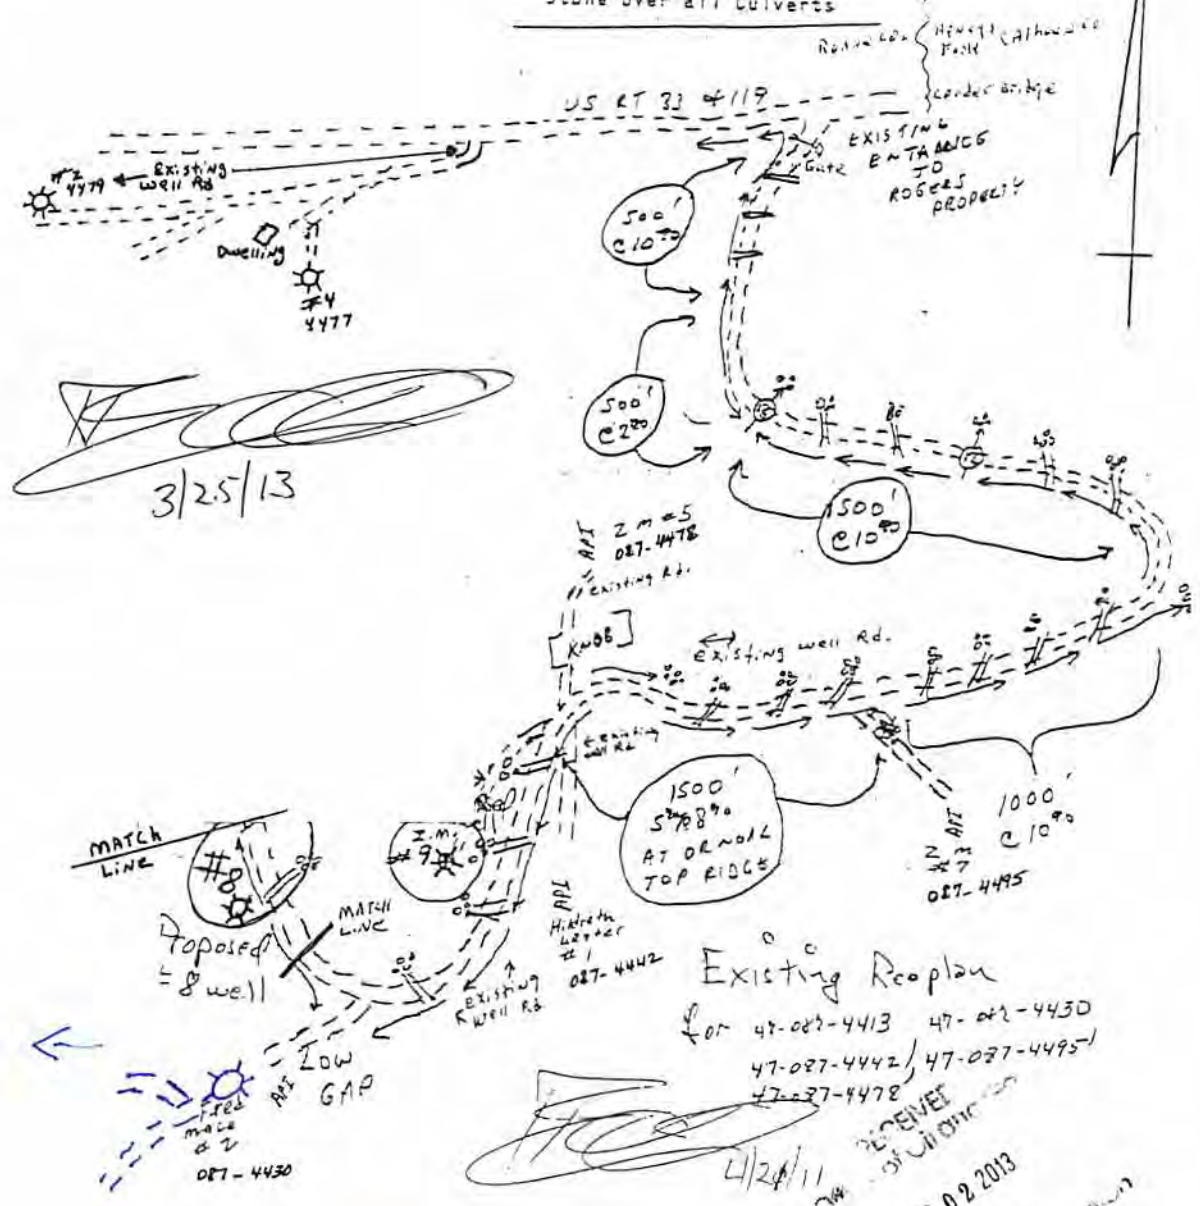 Stone over all Culverts
US RT 33 & 119
Corder Bridge
EXISTING
ENTRANCE
TO
ROGERS
PROPERTY
Gate
#2
4479
Existing
well Rd
Dwelling
#4
4477
500'
@ 10%
500'
@ 2%
1500'
@ 10%
3/25/13
API
Z M #5
087-4478
existing Rd.
KNOB
existing well Rd.
existing
well Rd
1500'
5 to 8%
AT OR NEAR
TOP RIDGE
1000'
@ 10%
API
Z M
#7
087-4495
MATCH
LINE
#8
Z.M.
#9
Proposed
#8 well
MATCH
LINE
API
Hildreth
Lester
#1
087-4442
existing
well Rd
LOW
GAP
API
Fred
Mace
#2
087-4430
Existing Recplan
for 47-087-4413 47-087-4430
47-087-4442, 47-087-4495
47-087-4478
RECEIVED
02 2013